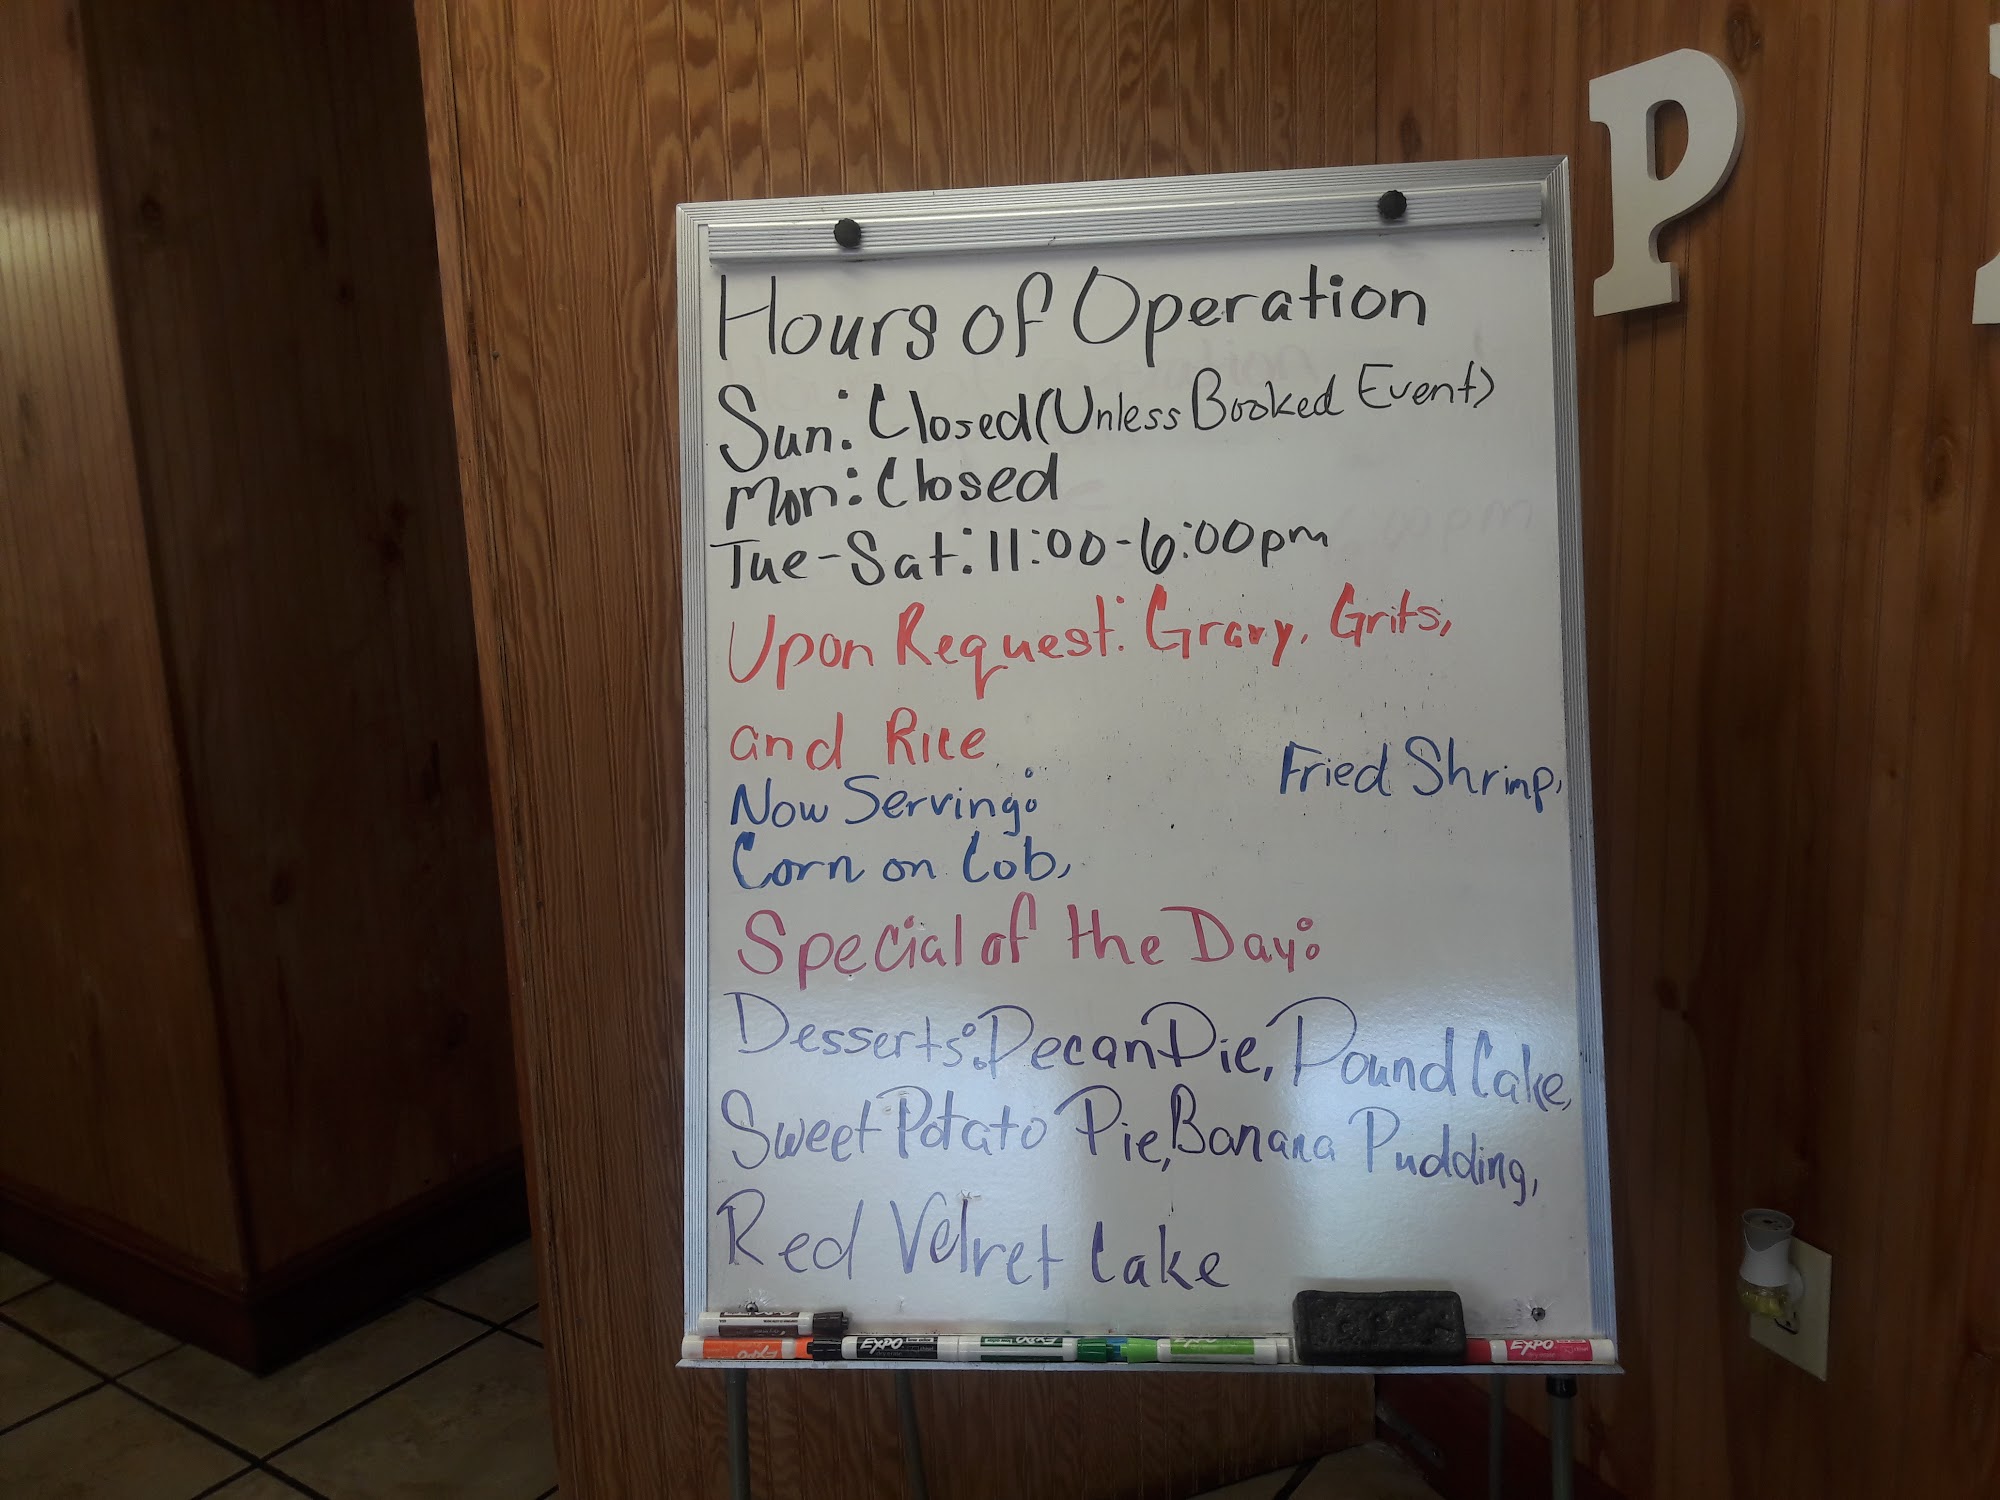 P
Hours of Operation
Sun: Closed (Unless Booked Event)
Mon: Closed
Tue-Sat: 11:00-6:00pm
Upon Request: Gravy, Grits,
and Rice
Fried Shrimp,
Now Serving:
Corn on Cob,
Special of the Day:
Desserts: Pecan Pie, Pound Cake,
Sweet Potato Pie, Banana Pudding,
Red Velvet Cake
EXPO
EXPO
EXPO
EXPO
EXPO